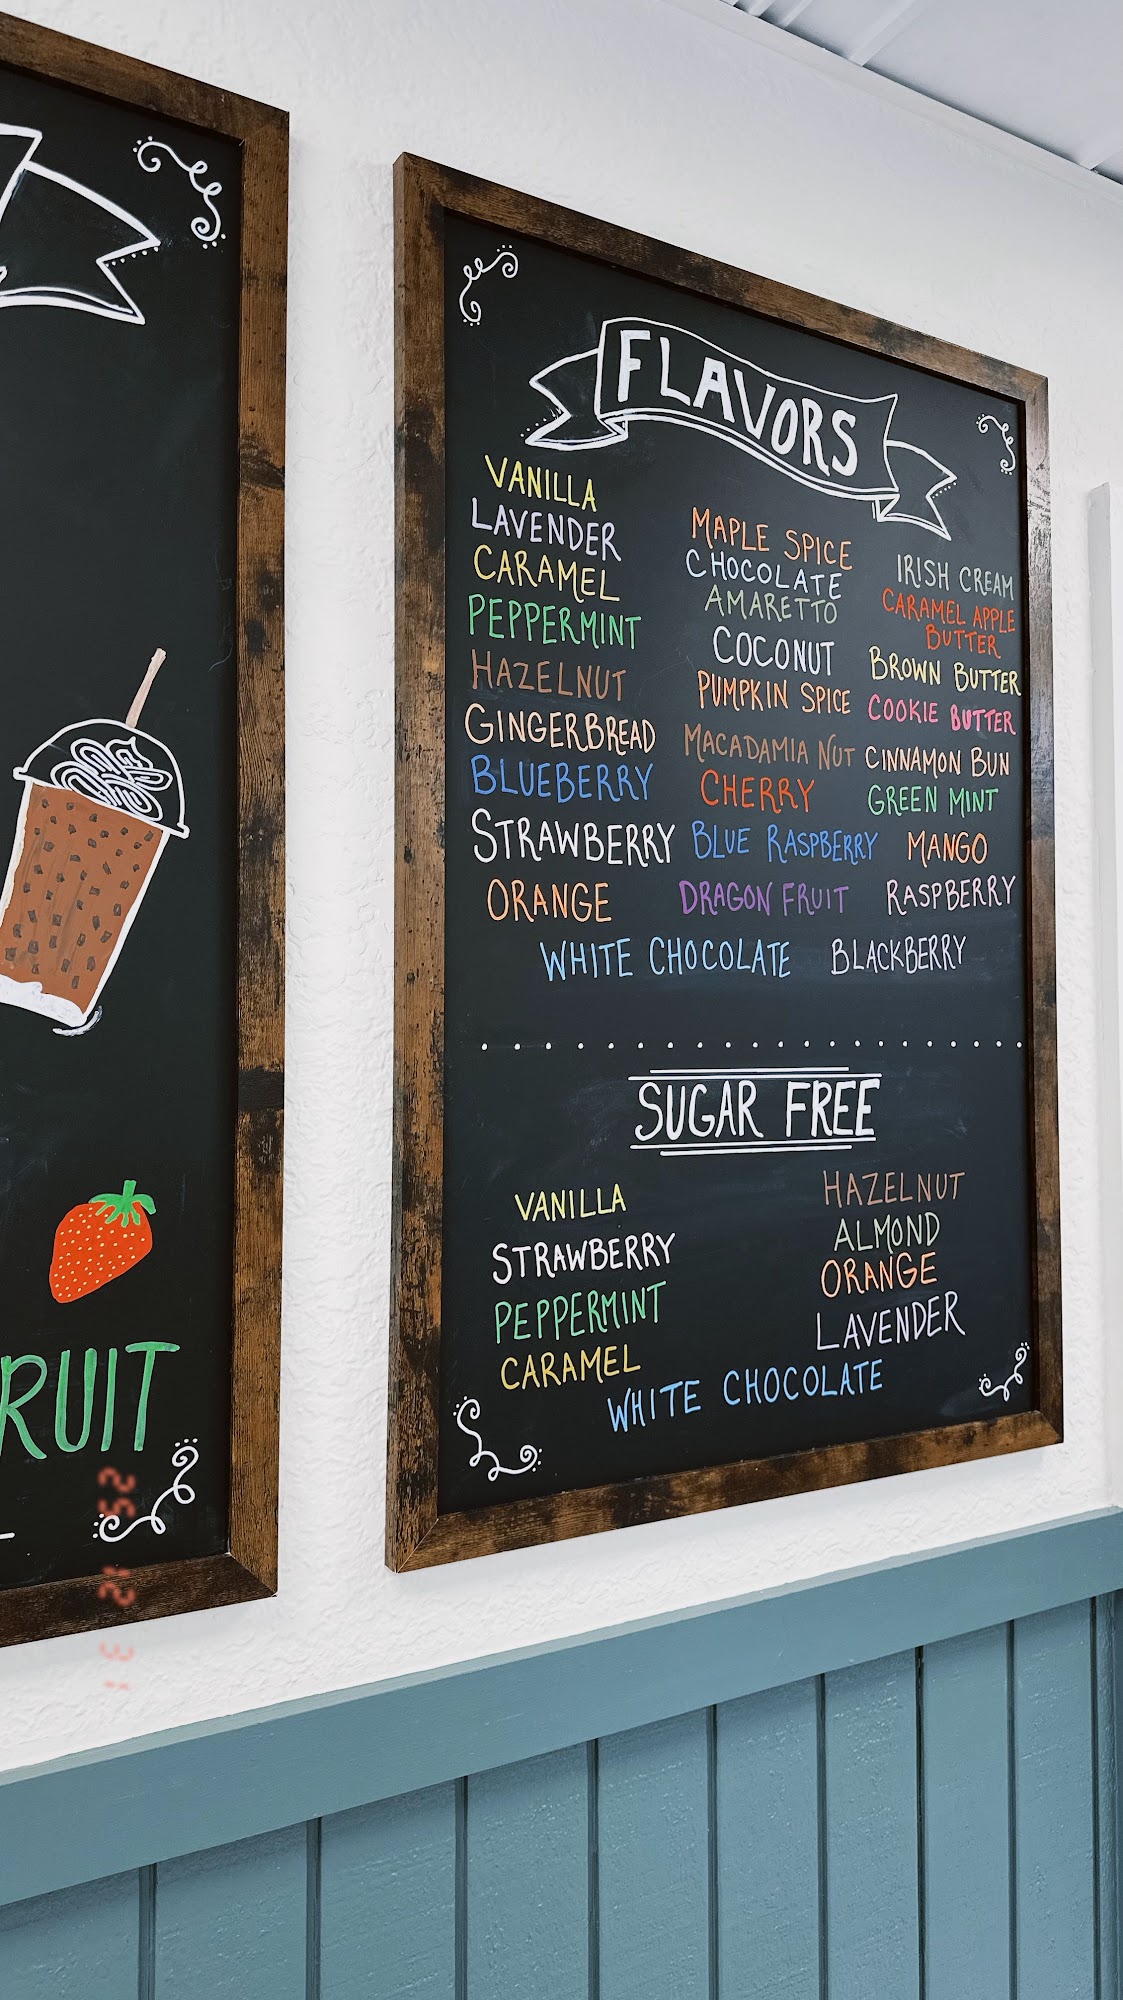 RUIT
FLAVORS
VANILLA
LAVENDER
CARAMEL
PEPPERMINT
HAZELNUT
GINGERBREAD
BLUEBERRY
STRAWBERRY
ORANGE
MAPLE SPICE
CHOCOLATE
AMARETTO
COCONUT
PUMPKIN SPICE
MACADAMIA NUT
CHERRY
BLUE RASPBERRY
DRAGON FRUIT
IRISH CREAM
CARAMEL APPLE
BUTTER
BROWN BUTTER
COOKIE BUTTER
CINNAMON BUN
GREEN MINT
MANGO
RASPBERRY
WHITE CHOCOLATE
BLACKBERRY
SUGAR FREE
VANILLA
STRAWBERRY
PEPPERMINT
CARAMEL
HAZELNUT
ALMOND
ORANGE
LAVENDER
WHITE CHOCOLATE